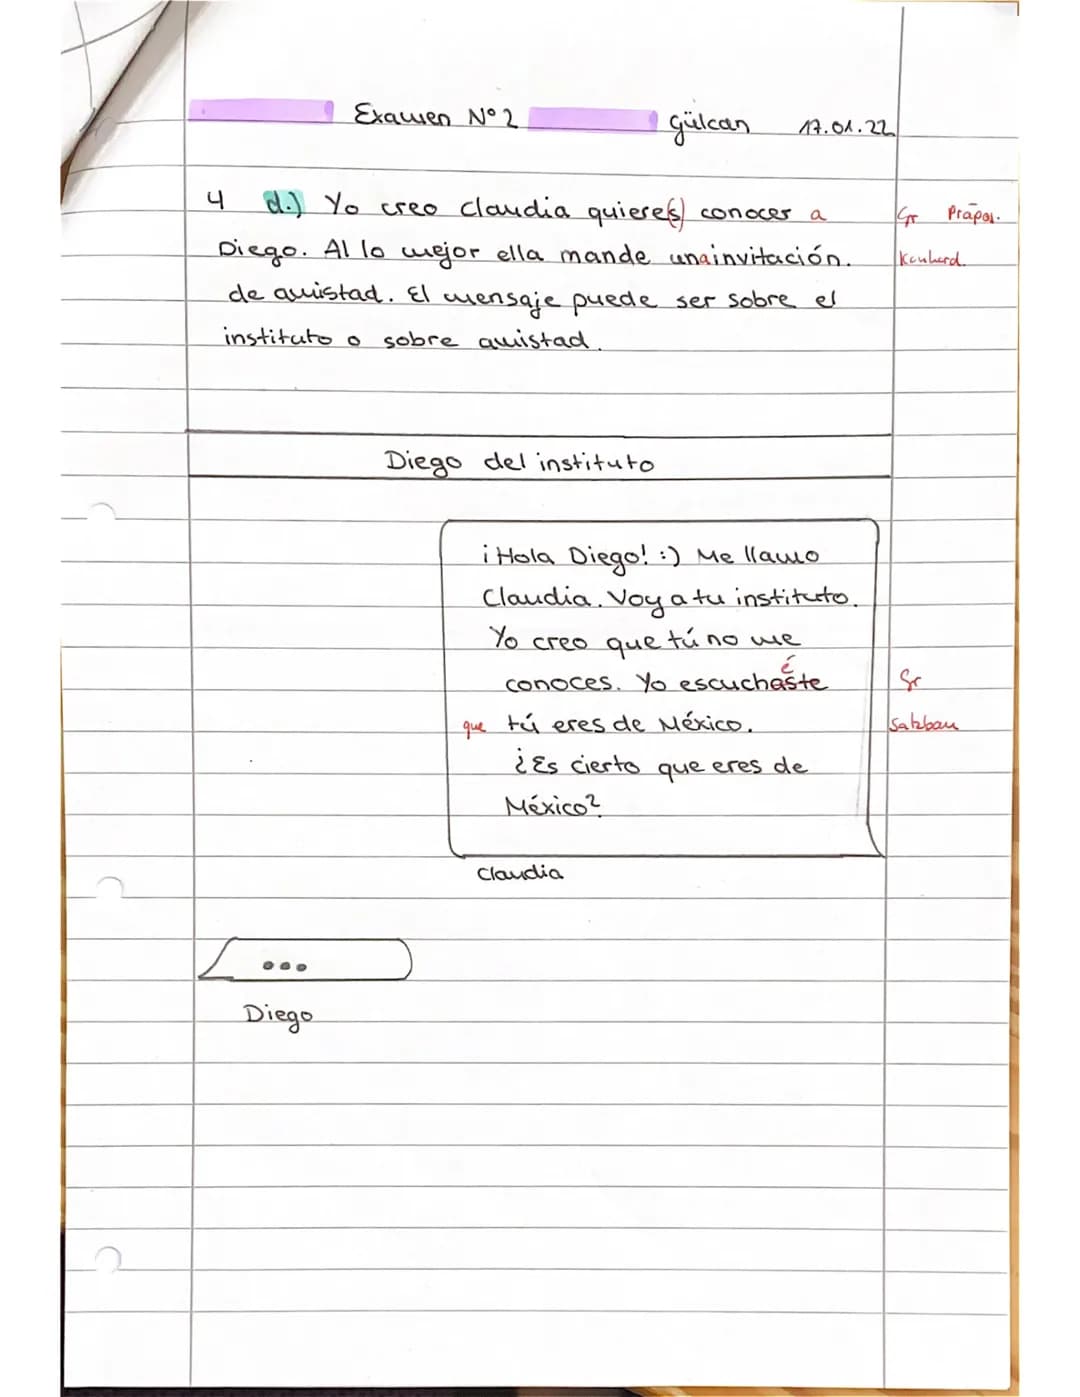 Examen Nº 2 gülcan 17.01.22
4 d.) Yo creo claudia quiere(s) conocer a Gr Präpos.
Diego. Al lo mejor ella mande una invitación. Konkord.
de amistad. El mensaje puede ser sobre el
instituto o sobre amistad.
Diego del instituto
¡Hola Diego! :) Me llamo
Claudia. Voy a tu instituto.
Yo creo que tú no me
é
conoces. Yo escuchaste Gr
que tú eres de México. Satzbau
¿Es cierto que eres de
México?
Claudia
...
Diego